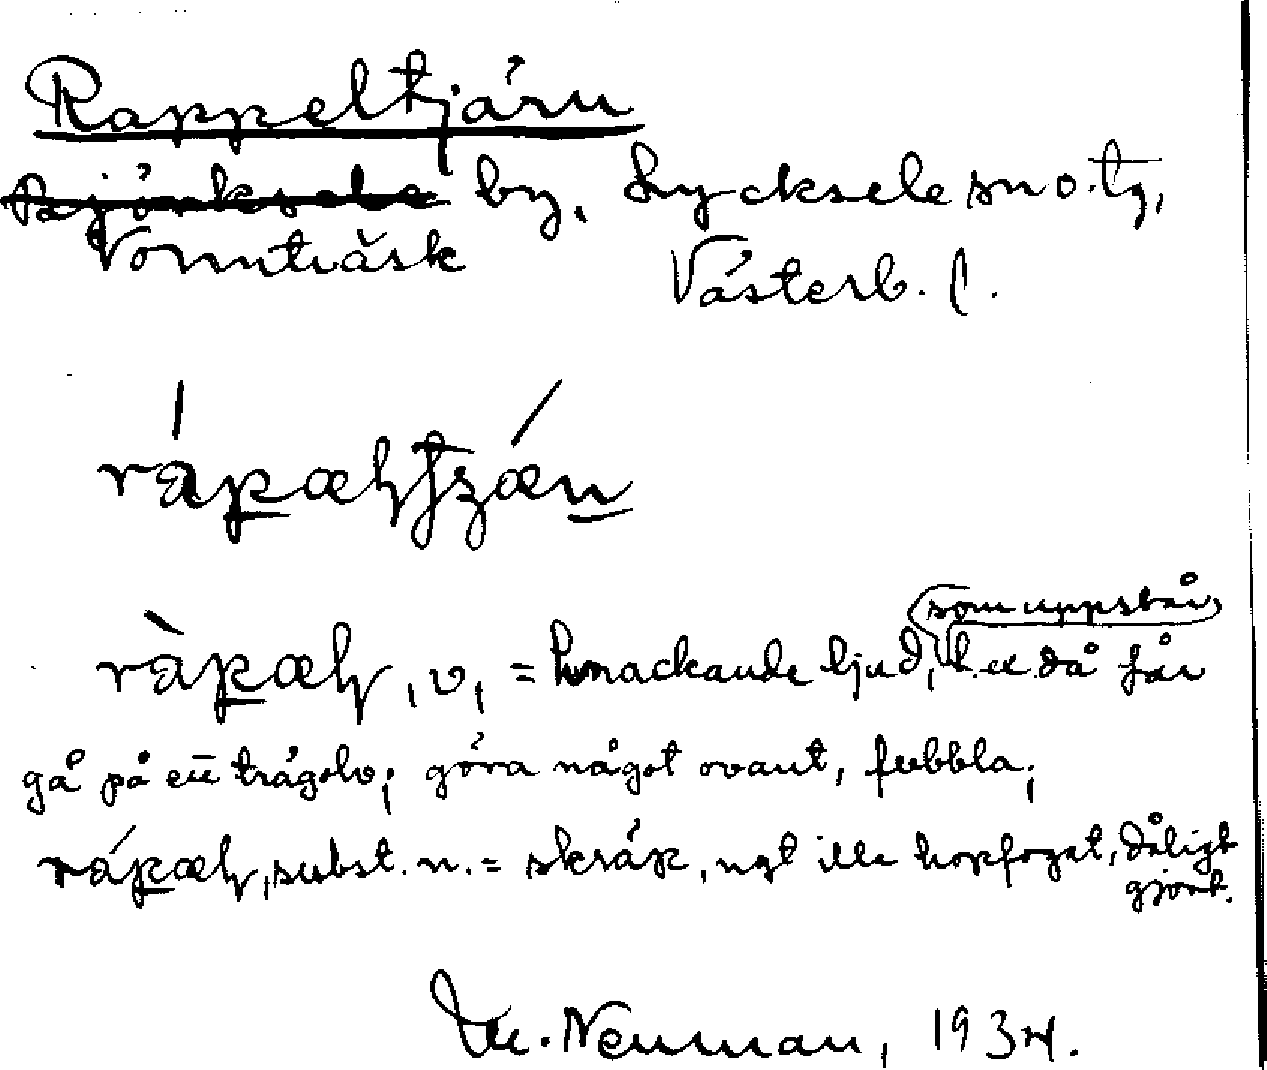 Rappeltjärn
Vormträsk by, Lycksele sn o. tg,
Västerb. l.
rápæl, v, = knackande ljud, (som uppstår) t. ex. då får
gå på en̄ trägolv; göra något ovant, fubbla;
subst. n. = skräp, ngt illa hopfogat, dåligt
gjort.
M. Neuman, 1934.